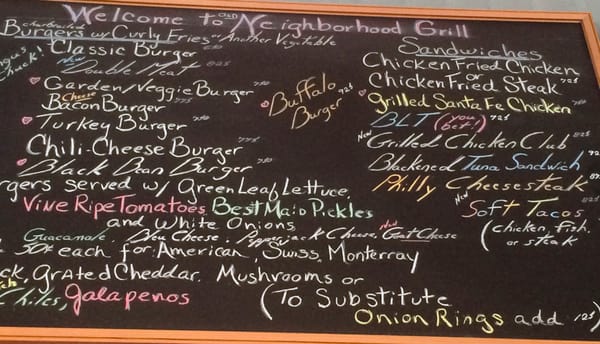 Welcome to OLD Neighborhood Grill
charbroiled
Burgers w/ Curly Fries or Another Vegetable
Angus
Chuck!
Classic Burger
New Double Meat 825
Garden/Veggie Burger 750
Bacon Cheese Burger 775
Turkey Burger 750
Chili-Cheese Burger 775
Black Bean Burger 750
Buffalo 925
Burger
rgers served w/ Green Leaf Lettuce,
Vine Ripe Tomatoes Best Maid Pickles
and White Onions
Guacamole, Bleu Cheese, Pepperjack Cheese, New Goat Cheese
50¢ each for: American, Swiss, Monterray
ck, Grated Cheddar, Mushrooms or
Chiles, Jalapenos
Sandwiches
Chicken Fried Chicken
or
Chicken Fried Steak 725
Grilled Santa Fe Chicken
BLT (you bet!) 725
New Grilled Chicken Club 825
Blackened Tuna Sandwich
Philly Cheesesteak
New Soft Tacos 825
(chicken, fish,
or steak
(To Substitute
Onion Rings add 125)